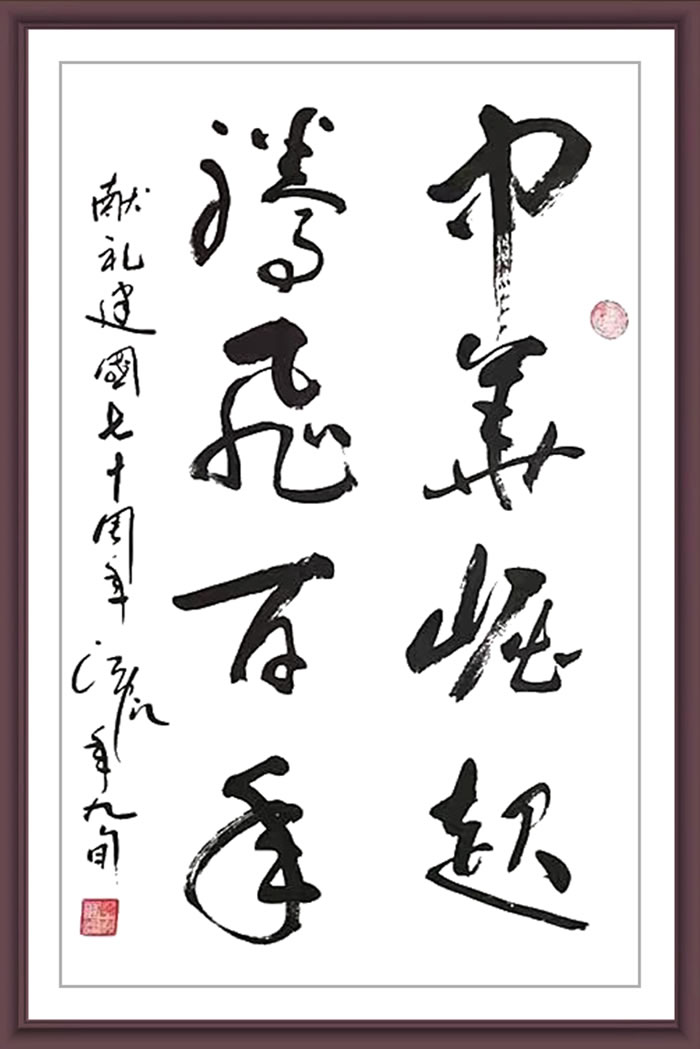 中華崛起
騰飛百年
献礼建國七十周年 年九旬